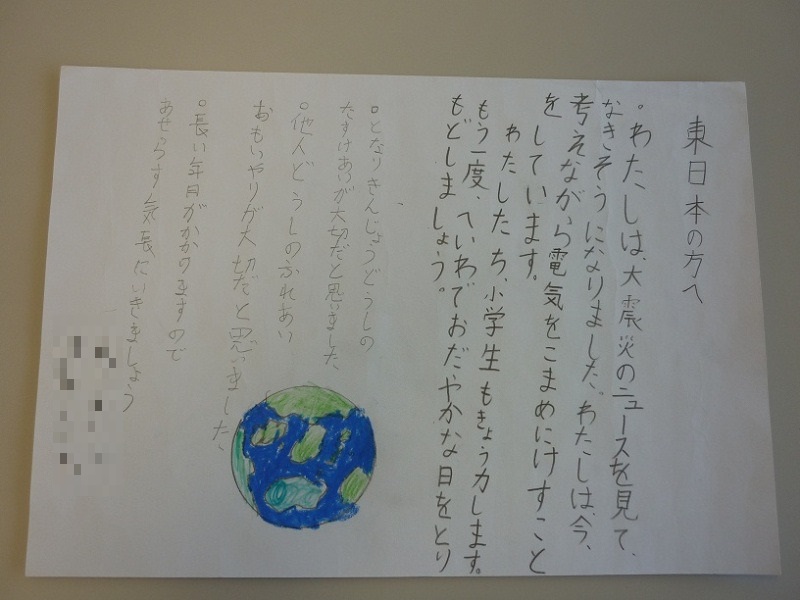 東日本の方へ
。わたしは、大震災のニュースを見て、
なきそうになりました。わたしは、今、
考えながら電気をこまめにけすこと
をしています。
わたしたち、小学生もきょう力します。
もう一度、へいわでおだやかな日をとり
もどしましょう。
。となりきんじょうどうしの
たすけあいが大切だと思いました、
。他人どうしのふれあい
おもいやりが大切だと思いました、
。長い年月がかかりますので
あせらず気長にいきましょう